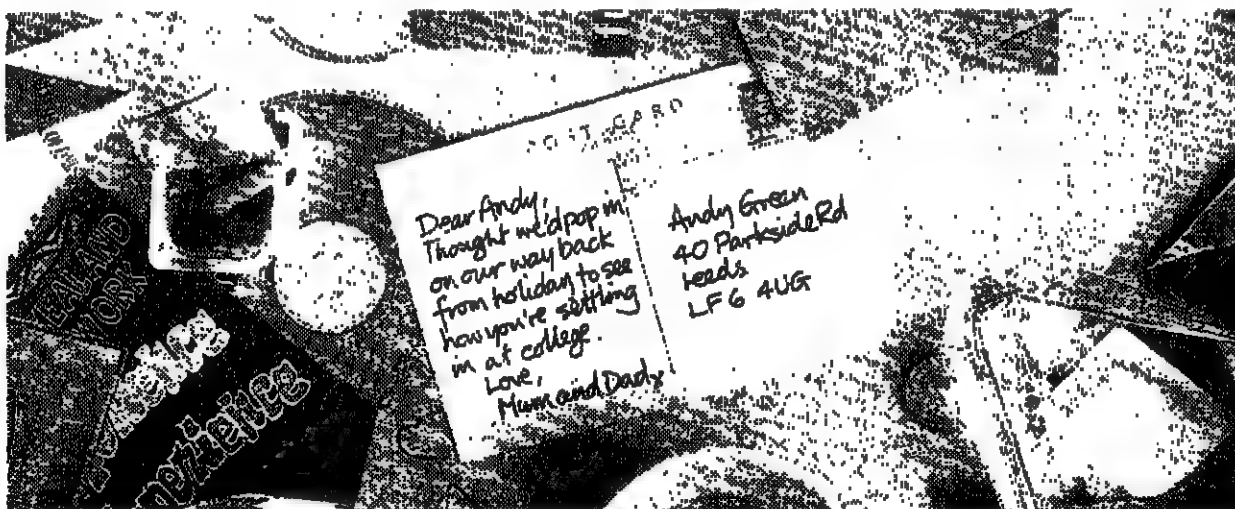 POST CARD
Dear Andy,
Thought we'd pop in
on our way back
from holiday to see
how you're settling
in at college.
Love,
Mum and Dad x
Andy Green
40 Parkside Rd
Leeds
LF6 4UG